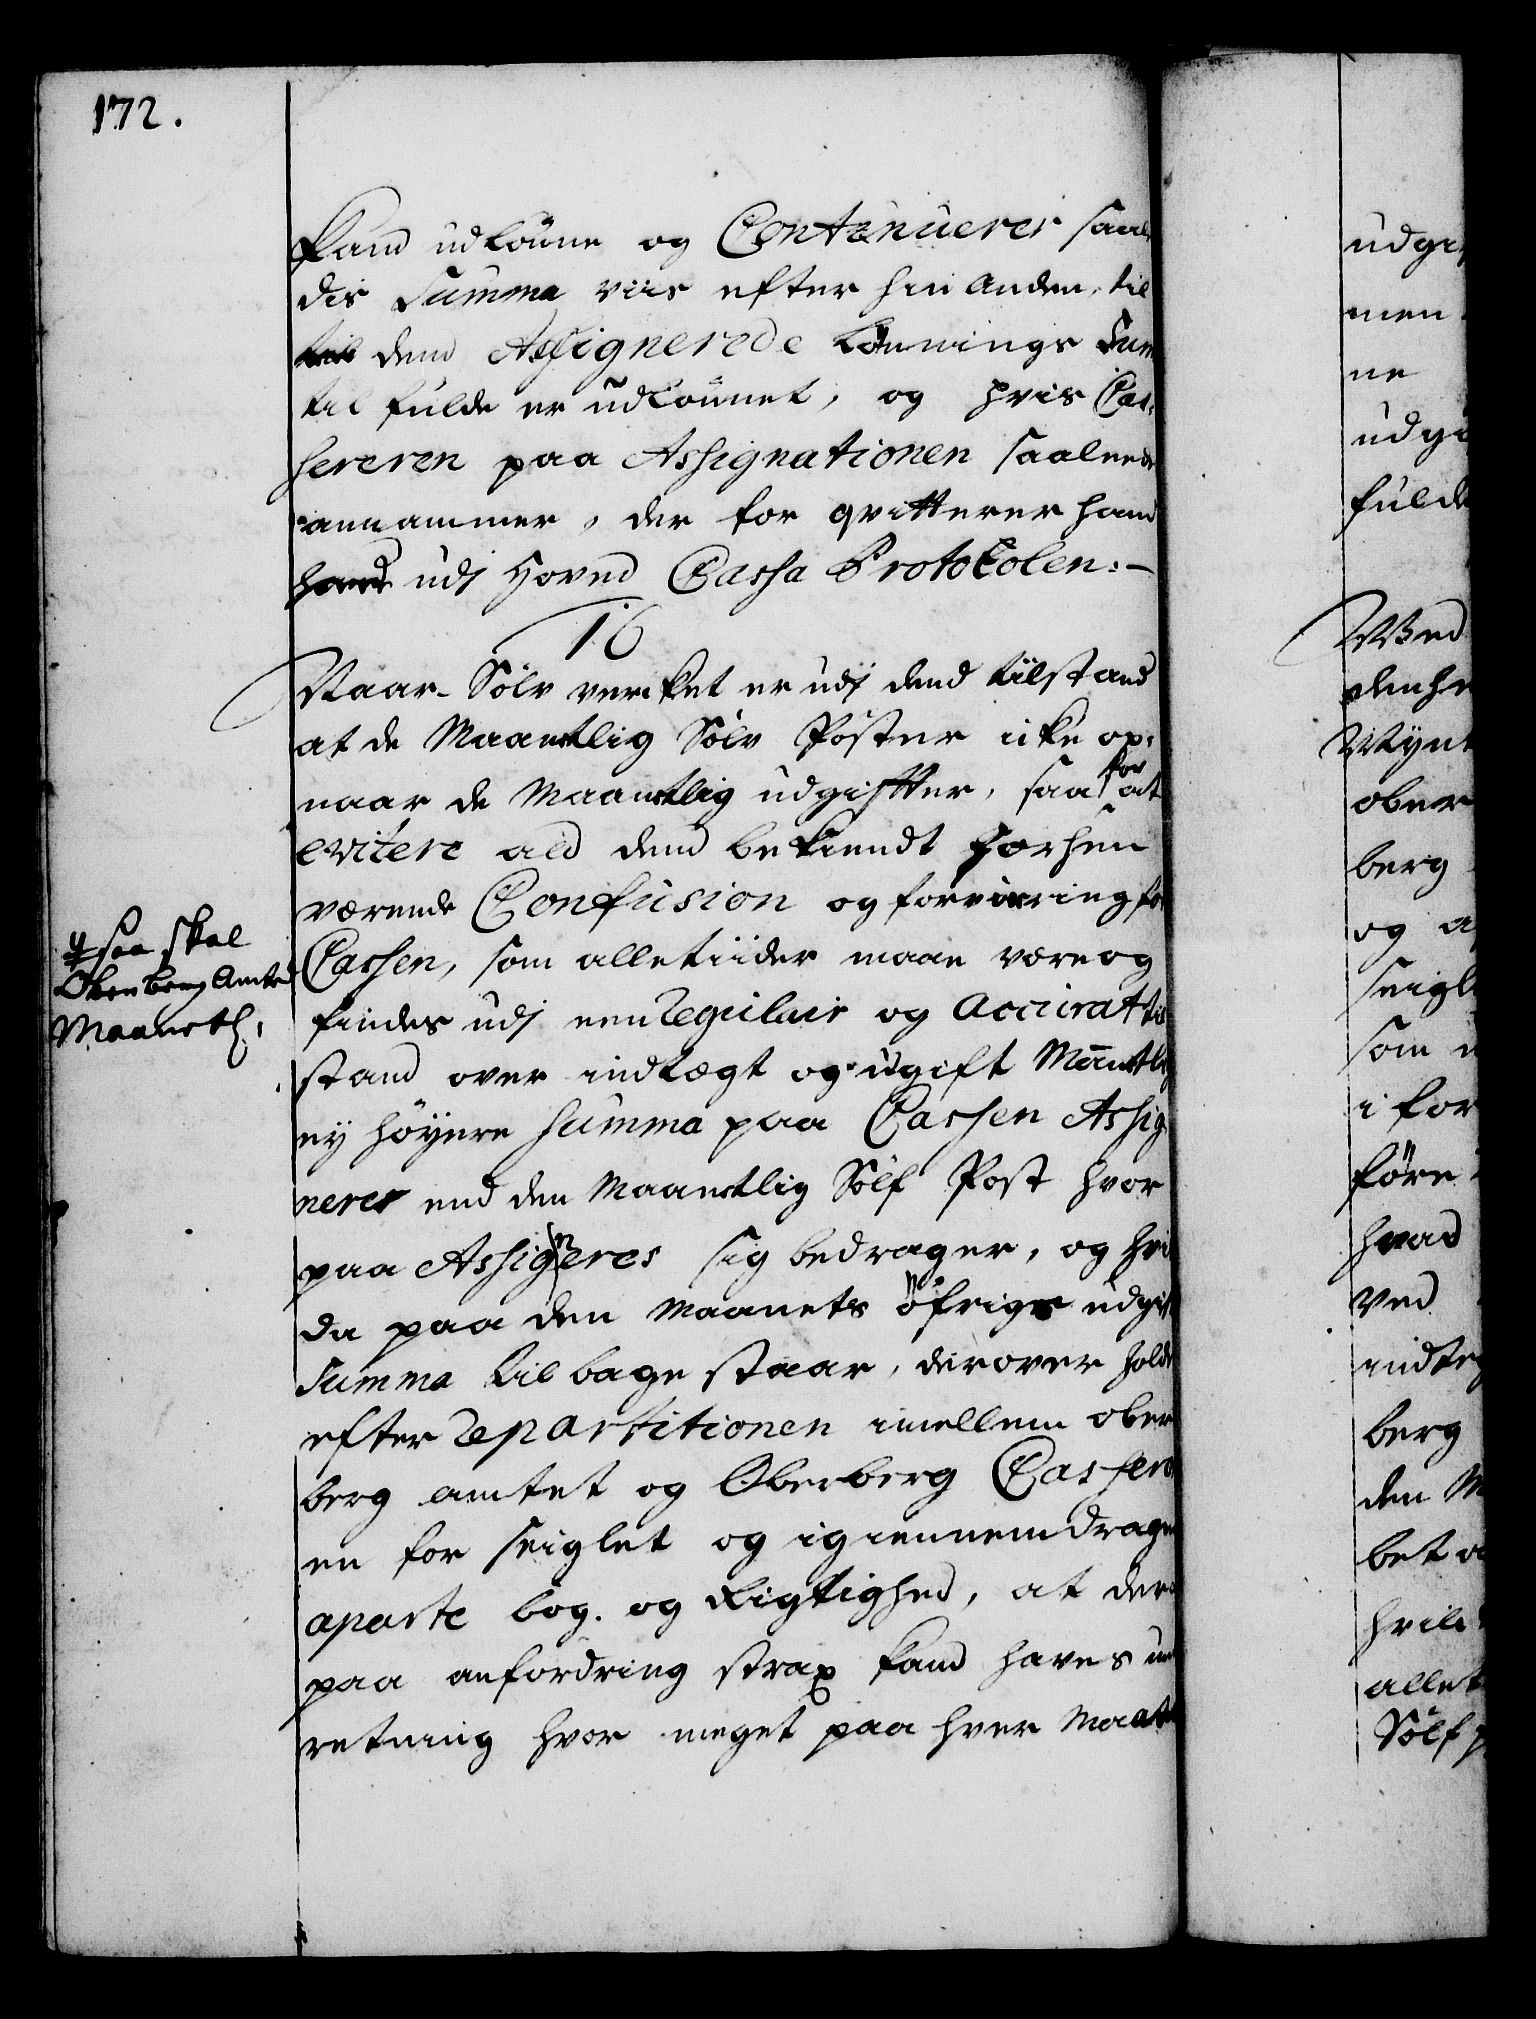 172.
kand udlønne og Continuerer saale
dis Summa viis efter hin anden, til
dend Assignerede lønnings Sum
til fulde er udlønnet, og hvis Cas:
sereren paa Assignationen saaleedis
annammer, der for qvitterer hand
udj Hoved Cassa Protokolen:-
16
Naar Sølv verket er udj dend tilstand
at de Maanetlig Sølv Poster icke op:
naar de Maanetlig udgiftter, saa for at
evitere ald dend bekiendt forhen
værende Confusion og forvirring for
Cassen, som alletiider maae være og
findes udj een Regulair og Accurat til
stand over indtægt og udgift Maanetlig
ey høyere Summa paa Cassen Assig
neres end den Maanetlig Sølf Post hvor
paa Assigneres sig bedrager, og hvis
da paa den Maanets øfrige udgift
Summa tilbage staar, derover holde
efter Repartitionen imellem ober
berg amtet og Oberberg Casserer
en for seiglet og igiennemdragen
aparte bog og Rigtighed, at der
paa anfordring strax kand haves un
retning hvor meget paa hver Maanet
saa skal
Oberberg Amtet
Maanetl:
udgif
men
ne
udgi
fulde
Wed
denhe
Mynt
ober
berg
og a
seigl
som u
i for
føre
hvad
ved
indteg
berg
den M
bet a
hvile
allet
Sølf p